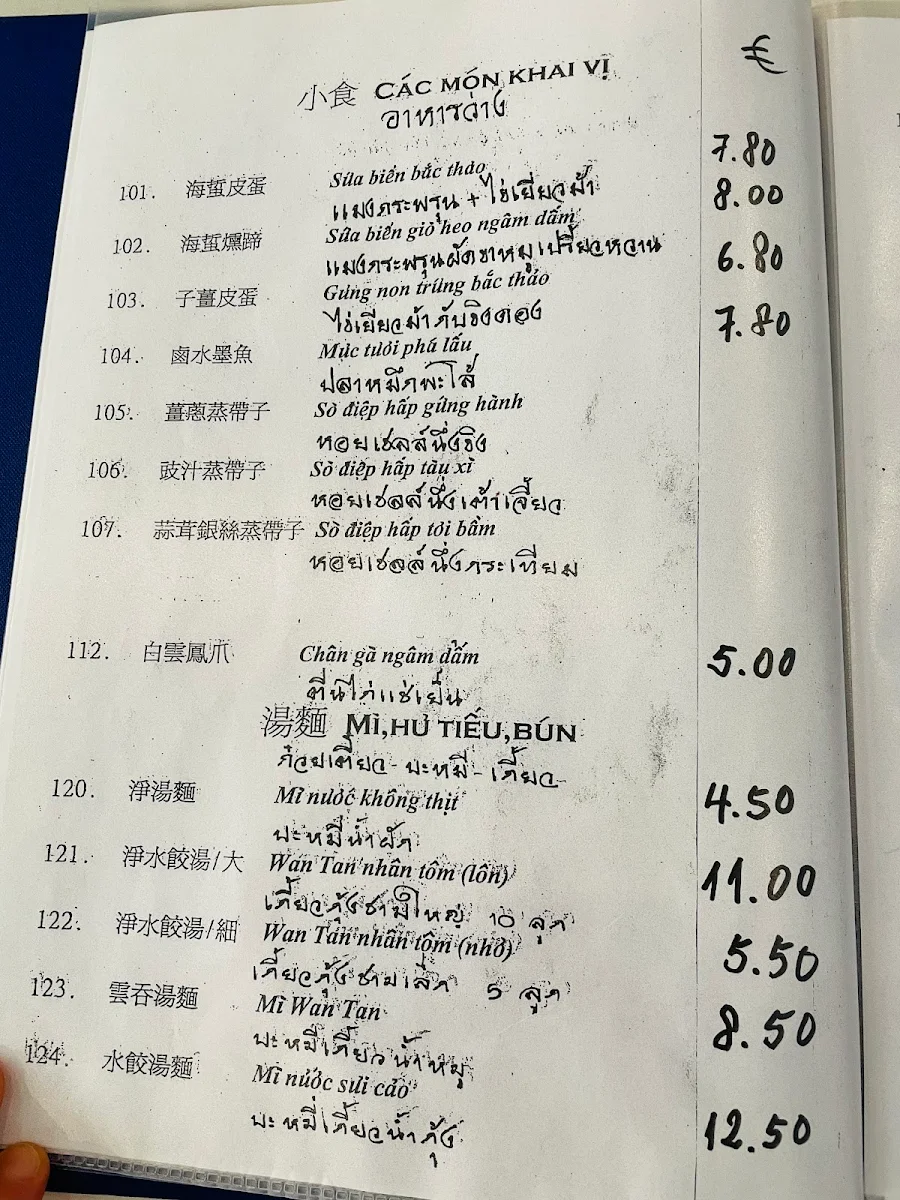 €
小食 CÁC MÓN KHAI VỊ
อาหารว่าง
101. 海蜇皮蛋 Sứa biển bắc thảo 7.80
แมงกระพรุน + ไข่เยี่ยวม้า
102. 海蜇燻蹄 Sứa biển giò heo ngâm dấm 8.00
แมงกระพรุนผัดขาหมูเปรี้ยวหวาน
103. 子薑皮蛋 Gừng non trứng bắc thảo 6.80
ไข่เยี่ยวม้ากับขิงดอง
104. 鹵水墨魚 Mực tươi phá lấu 7.80
ปลาหมึกพะโล้
105. 薑蔥蒸帶子 Sò điệp hấp gừng hành
หอยเชลล์นึ่งขิง
106. 豉汁蒸帶子 Sò điệp hấp tàu xì
หอยเชลล์นึ่งเต้าเจี้ยว
107. 蒜茸銀絲蒸帶子 Sò điệp hấp tỏi bằm
หอยเชลล์นึ่งกระเทียม
112. 白雲鳳爪 Chân gà ngâm dấm 5.00
ตีนไก่แช่เย็น
湯麵 MÌ,HỦ TIẾU,BÚN
ก๋วยเตี๋ยว - บะหมี่ - เกี้ยว
120. 淨湯麵 Mì nước không thịt 4.50
บะหมี่น้ำผัก
121. 淨水餃湯/大 Wan Tan nhân tôm (lớn) 11.00
เกี้ยวกุ้งชามใหญ่ 10 ลูก
122. 淨水餃湯/細 Wan Tan nhân tôm (nhỏ) 5.50
เกี้ยวกุ้งชามเล็ก 5 ลูก
123. 雲吞湯麵 Mì Wan Tan 8.50
บะหมี่เกี้ยวน้ำหมู
124. 水餃湯麵 Mì nước sủi cảo 12.50
บะหมี่เกี้ยวน้ำกุ้ง